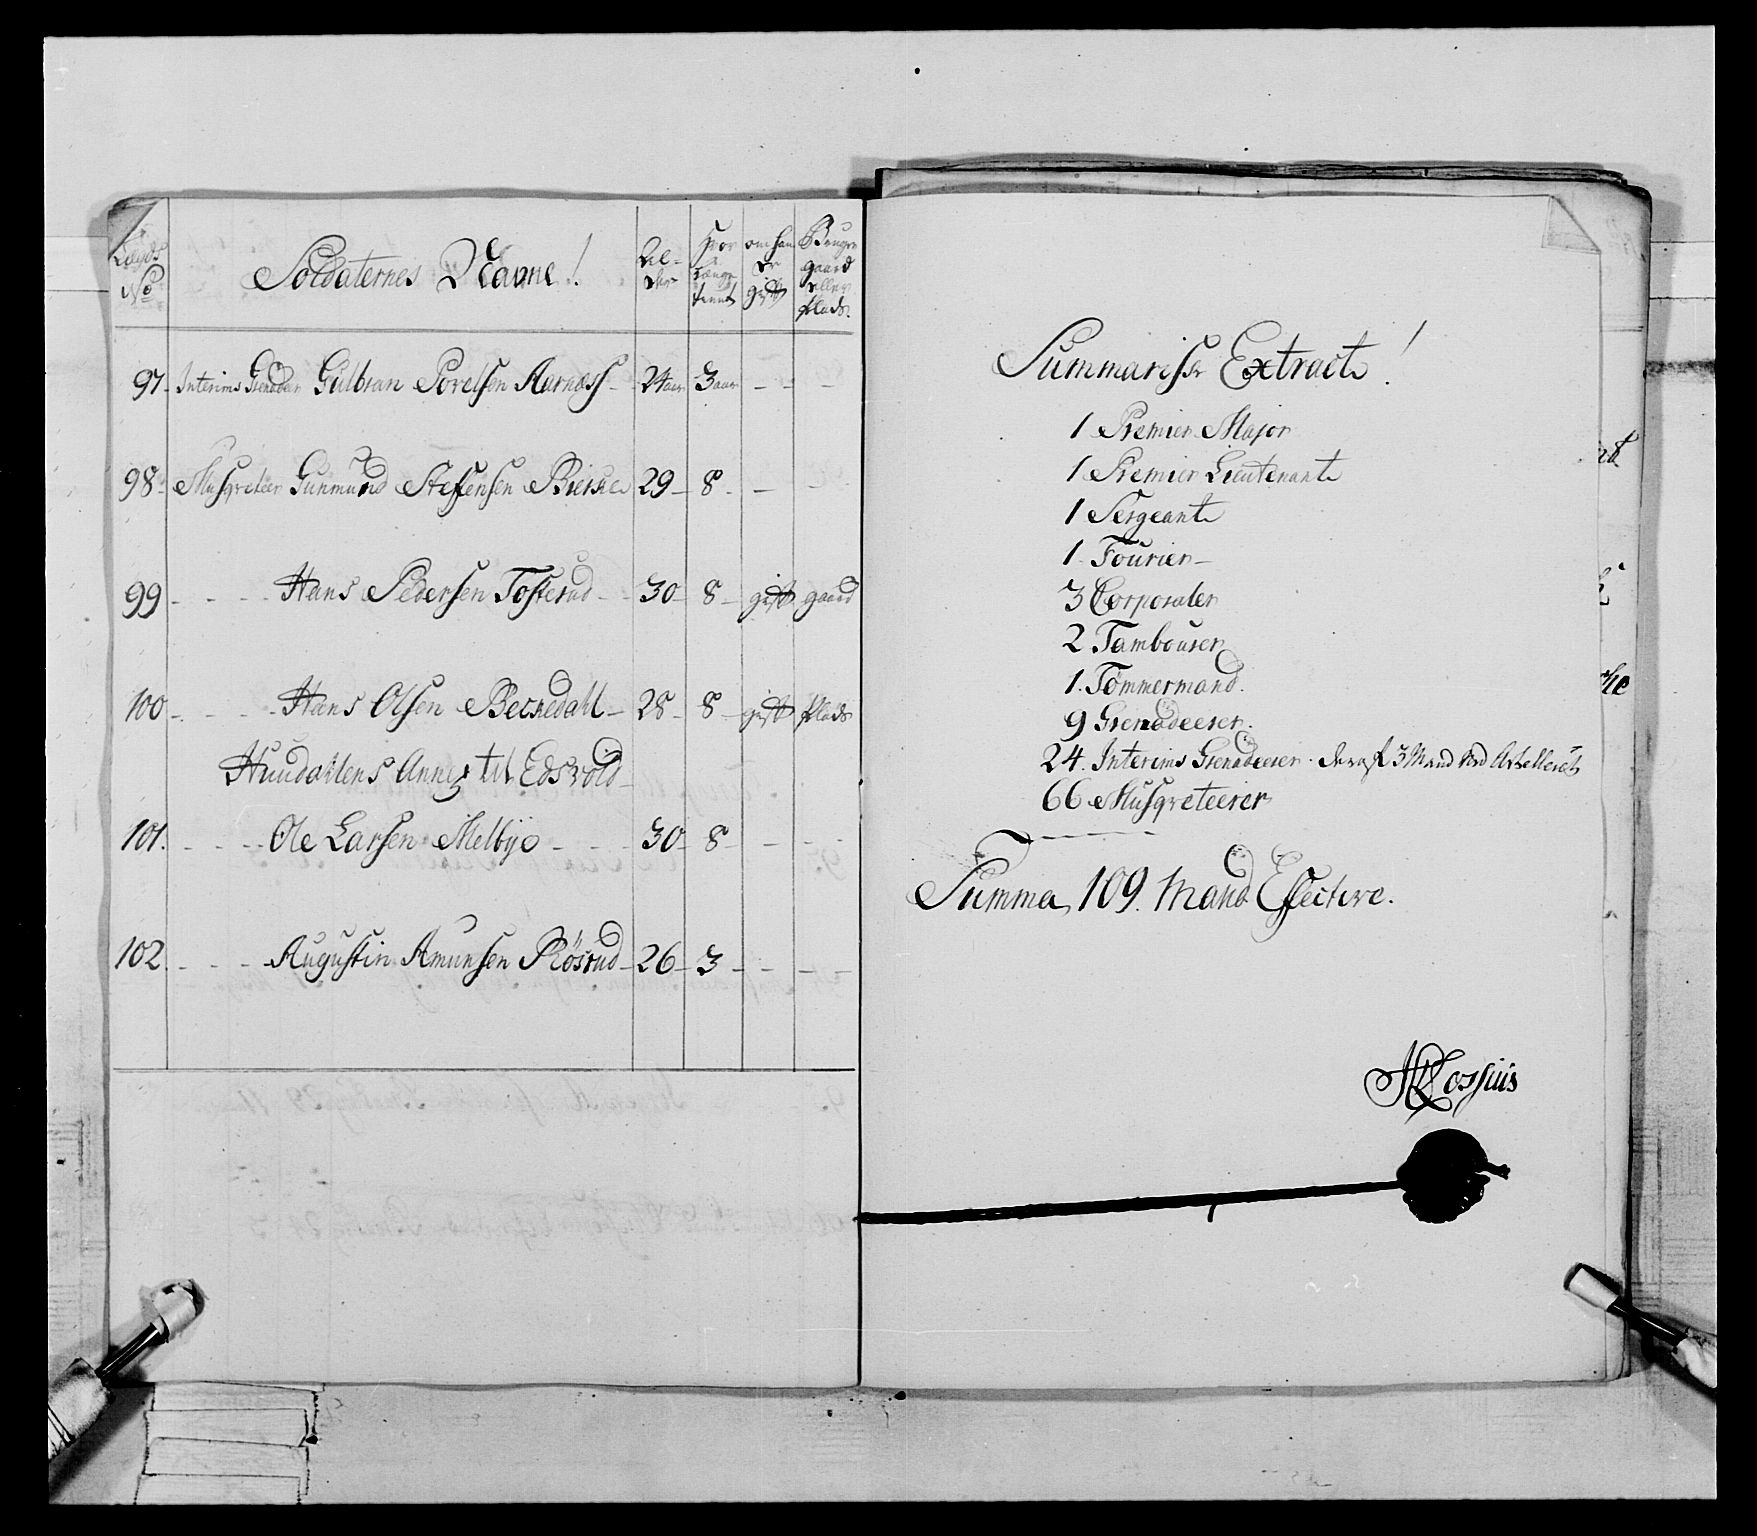 Lægds No
Soldaternes Navne!
Al-
der
Hvor
Længe
tient
om han
er
gift
Bruger
gaard
eller
plads.
97 Interims Grenader Gulbran Porelsen Aarness 24 aar 3 aar
98 Musqveteer Gunmund Steffensen Bierke 29 8
99 Hans Pedersen Tosterud 30 8 gift gaard
100 Hans Olsen Beckedahl 28 8 gift plads
Huudahlens Annex til Edsvold
101. Ole Larsen Melbye 30 8
102 Augustin Amunsen Røsrud 26 3
Summariske Extract!
1 Premier Major
1 Premier Lieutenant
1 Sergeant
1 Fourier
3 Corporaler
2 Tambourer
1. Tømmermand.
9 Grenadeerer.
24. Interims Grenadeerer. deraf 3 Mand ved Artelleriet
66 Musqveteerer
Summa 109. Mand Effective.